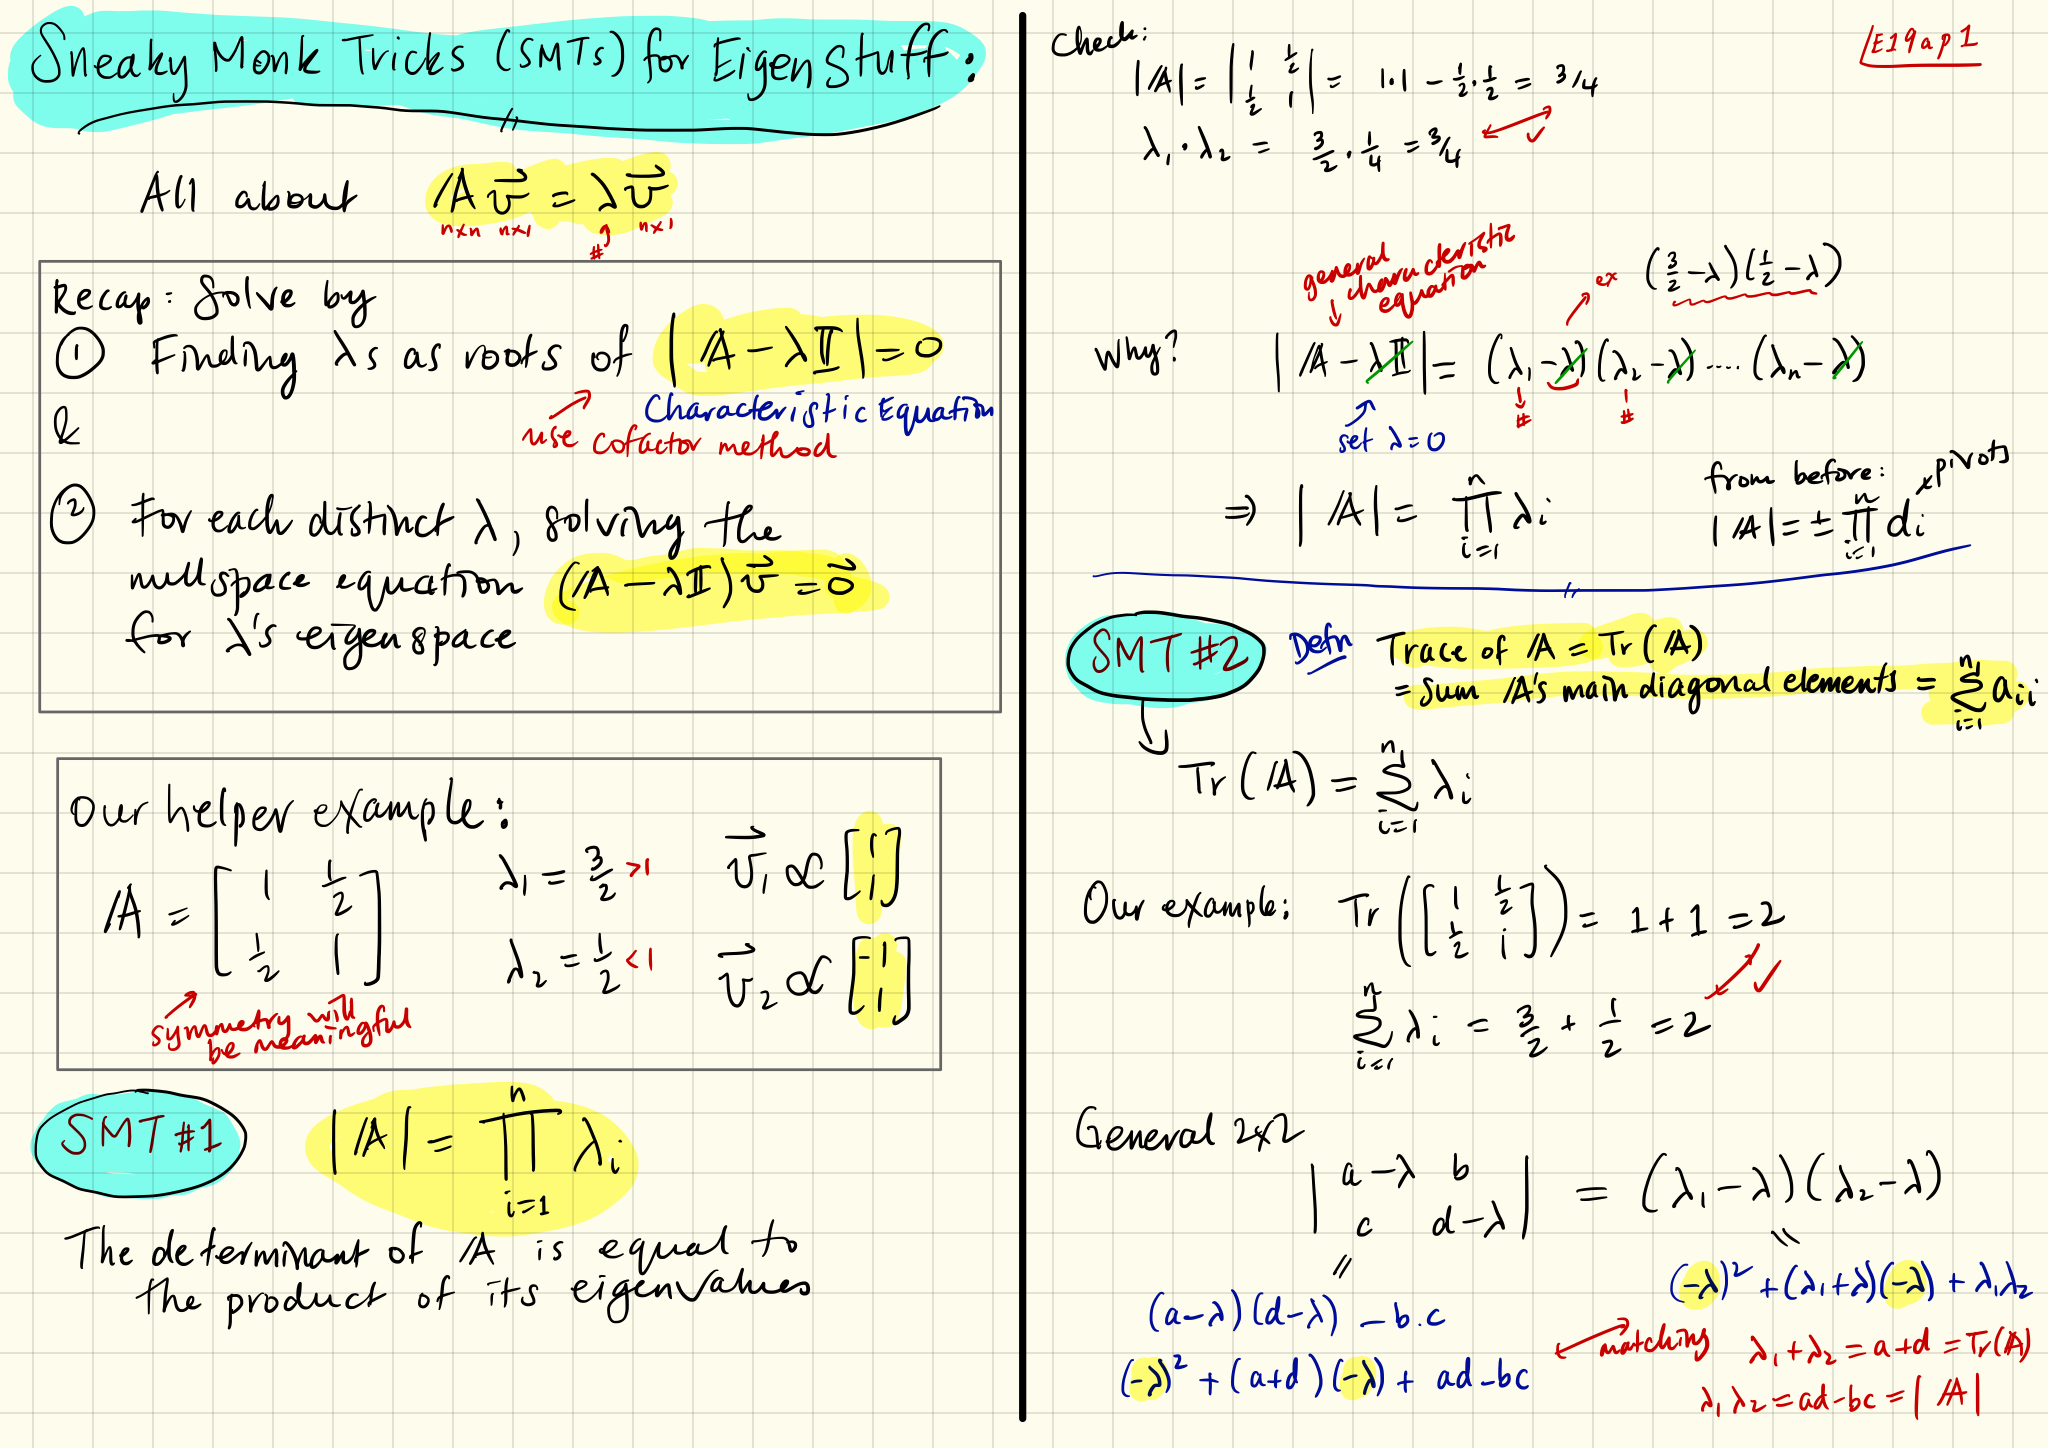 Sneaky Monk Tricks (SMTs) for Eigenstuff:
All about 𝔸v⃗ = λv⃗
n×n n×1 # n×1
Recap: Solve by
① Finding λs as roots of |𝔸 − λ𝕀| = 0
Characteristic Equation
use cofactor method
&
② For each distinct λ, solving the
nullspace equation (𝔸 − λ𝕀)v⃗ = 0⃗
for λ's eigenspace
Our helper example:
𝔸 = [1 1/2; 1/2 1]
λ₁ = 3/2 >1 v⃗₁ ∝ [1; 1]
λ₂ = 1/2 <1 v⃗₂ ∝ [-1; 1]
symmetry will
be meaningful
SMT #1 |𝔸| = ∏ᵢ₌₁ⁿ λᵢ
The determinant of 𝔸 is equal to
the product of its eigenvalues
E19a p1
Check:
|𝔸| = |1 1/2; 1/2 1| = 1·1 − 1/2·1/2 = 3/4
λ₁·λ₂ = 3/2 · 1/4 = 3/4 ✓
general
characteristic
equation
ex (3/2 − λ)(1/2 − λ)
Why? |𝔸 − λ𝕀| = (λ₁ − λ)(λ₂ − λ)....(λₙ − λ)
# #
set λ = 0
⇒ |𝔸| = ∏ᵢ₌₁ⁿ λᵢ
from before: pivots
|𝔸| = ± ∏ᵢ₌₁ⁿ dᵢ
SMT #2 Defn Trace of 𝔸 = Tr(𝔸)
= sum 𝔸's main diagonal elements = ∑ᵢ₌₁ⁿ aᵢᵢ
Tr(𝔸) = ∑ᵢ₌₁ⁿ λᵢ
Our example: Tr([1 1/2; 1/2 1]) = 1 + 1 = 2
∑ᵢ₌₁ⁿ λᵢ = 3/2 + 1/2 = 2 ✓
General 2x2
|a−λ b; c d−λ| = (λ₁ − λ)(λ₂ − λ)
= =
(a−λ)(d−λ) − b.c
(−λ)² + (a+d)(−λ) + ad−bc
(−λ)² + (λ₁+λ)(−λ) + λ₁λ₂
matching λ₁+λ₂ = a+d = Tr(𝔸)
λ₁λ₂ = ad−bc = |𝔸|